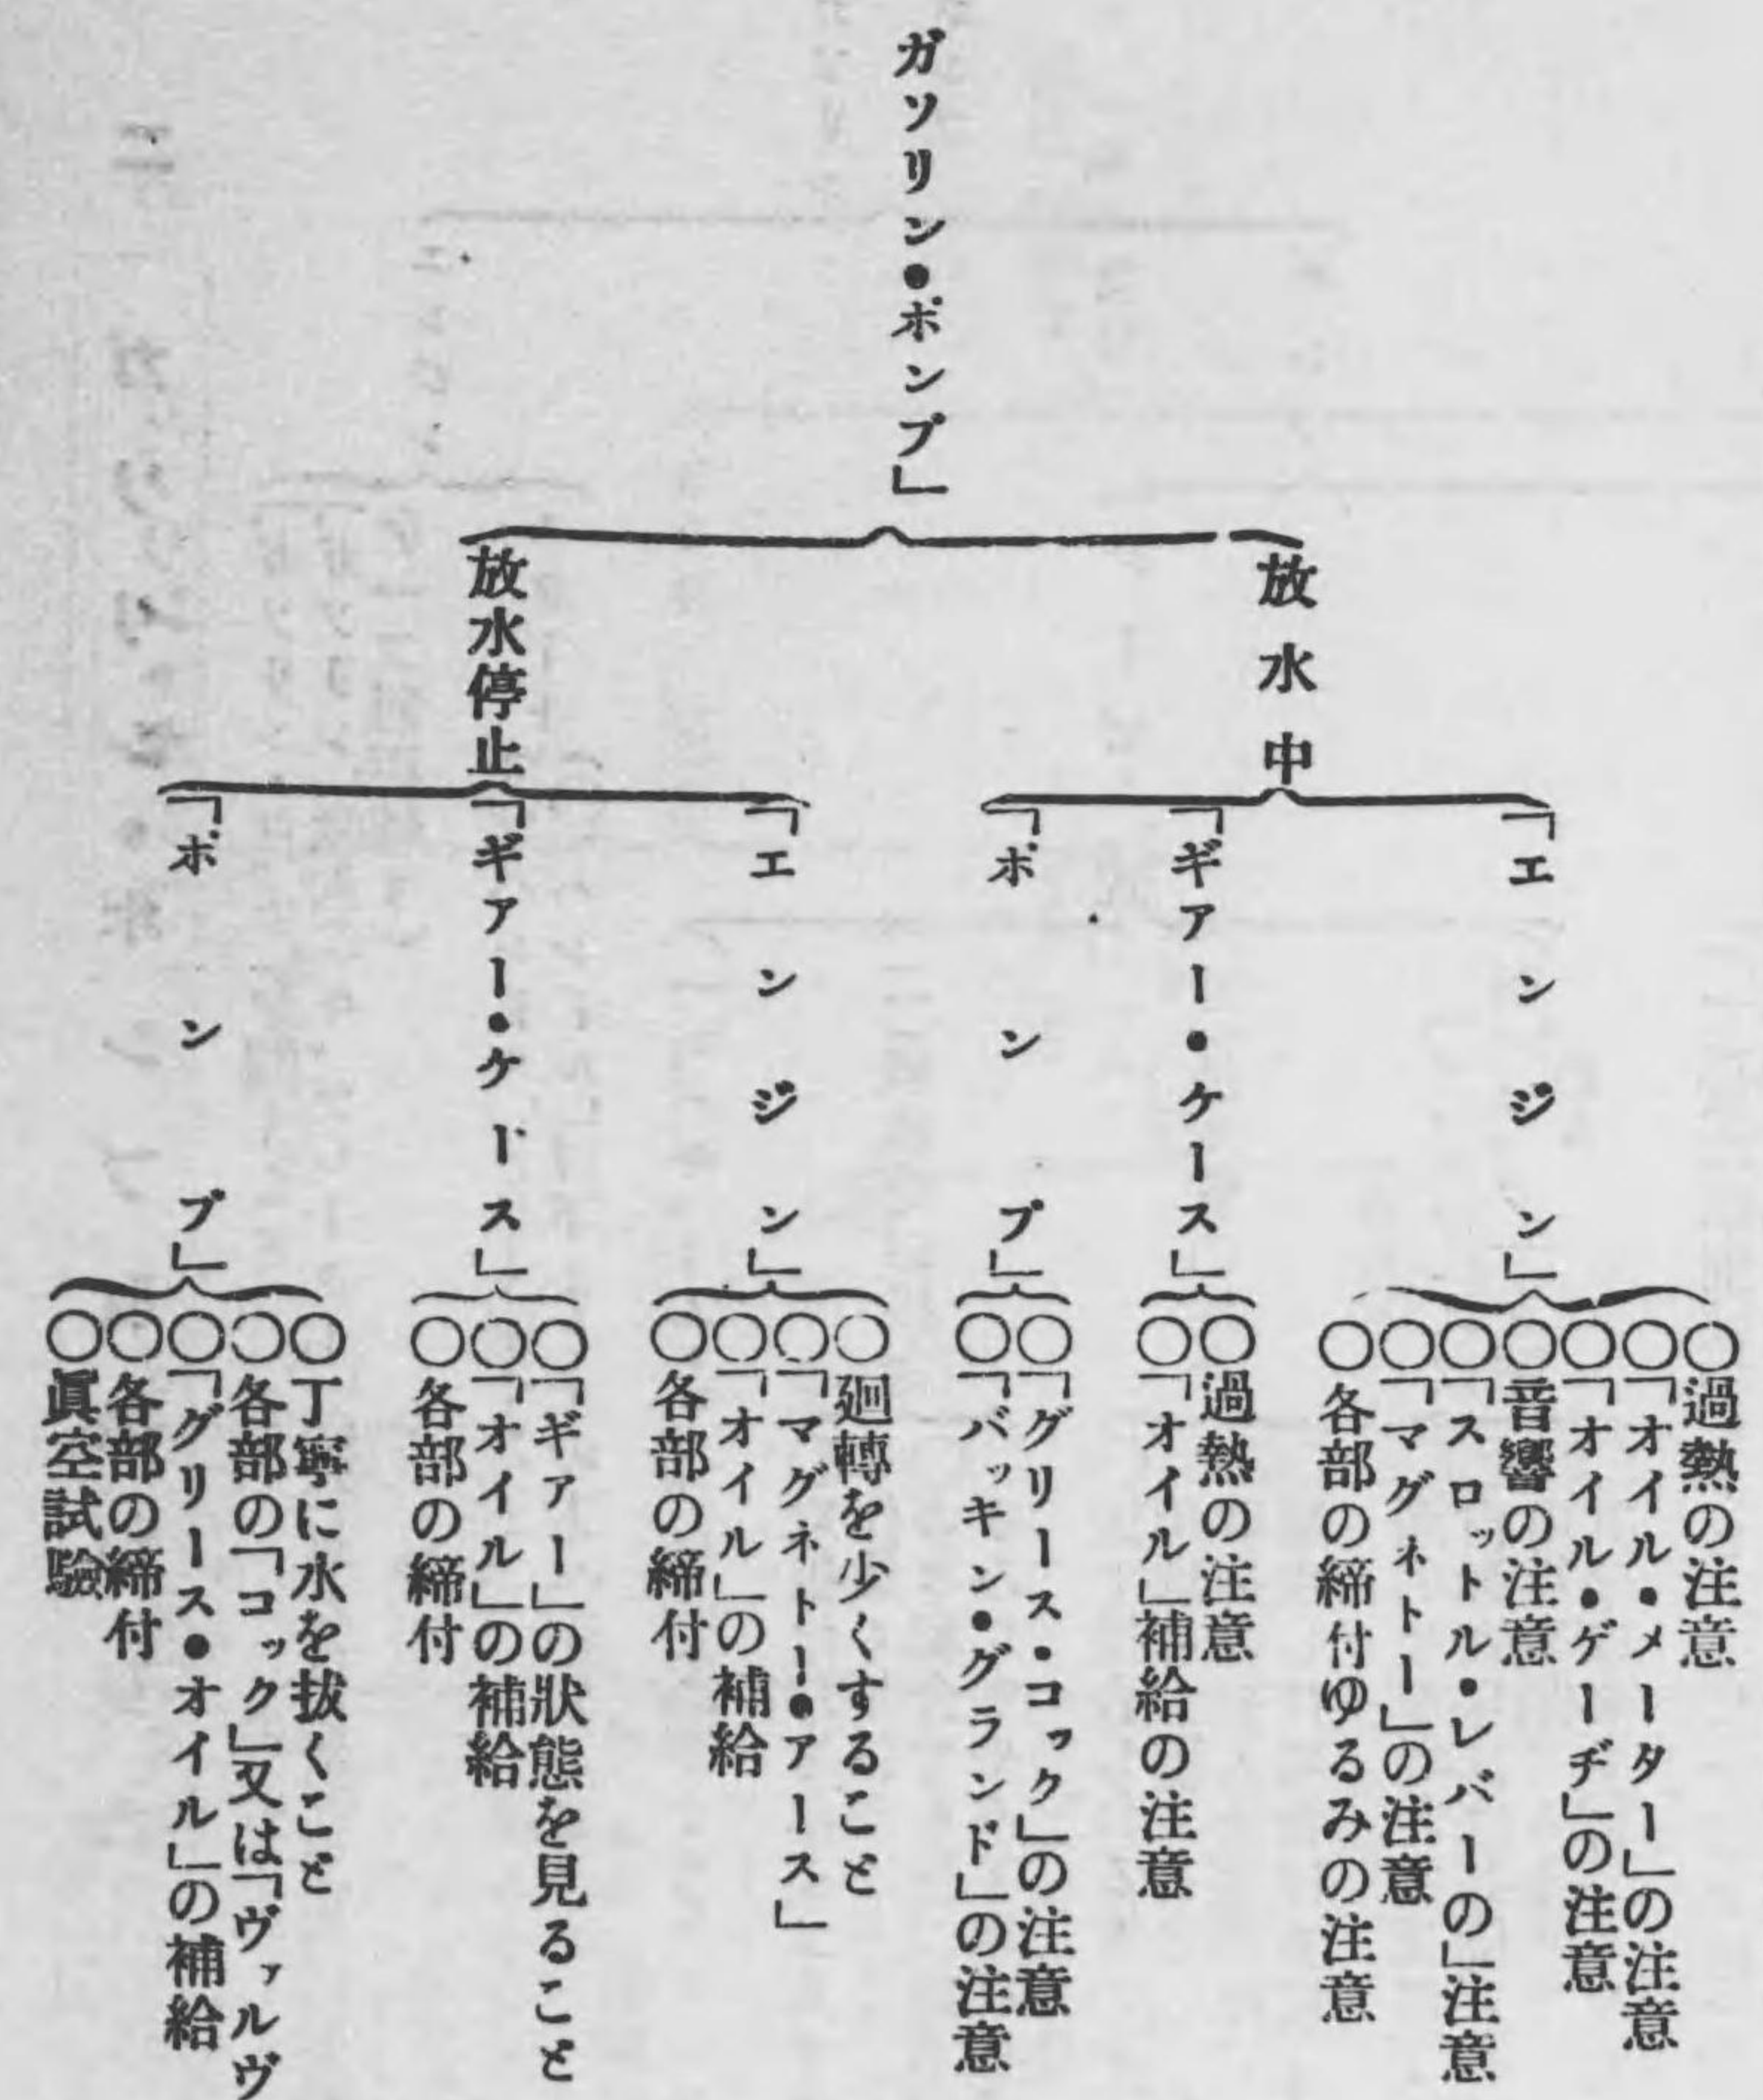 ガソリン●ポンプ」
放水中
「エンジン」
○過熱の注意
○「オイル・メーター」の注意
○「オイル・ゲーヂ」の注意
○音響の注意
○「スロットル・レバーの」注意
○「マグネトー」の注意
○各部の締付ゆるみの注意
「ギアー・ケース」
○過熱の注意
○「オイル」補給の注意
「ポンプ」
○「グリース・コック」の注意
○「パッキン・グランド」の注意
放水停止
「エンジン」
○廻轉を少くすること
○「マグネトー・アース」
○「オイル」の補給
○各部の締付
「ギァー・ケース」
○「ギァー」の狀態を見ること
○「オイル」の補給
○各部の締付
「ポンプ」
○丁寧に水を拔くこと
○各部の「コック」又は「ヴァルヴ
○「グリース・オイル」の補給
○各部の締付
○眞空試驗